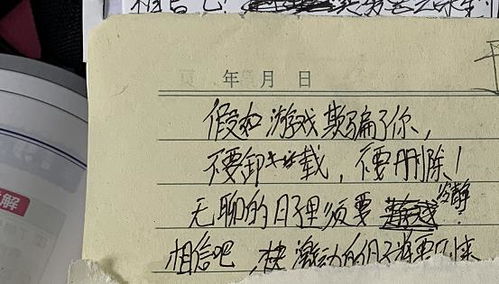 相信吧！
年 月 日
假如游戏欺骗了你，
不要卸载，不要删除！
无聊的日子里须要冷静
相信吧，快激动的日子将要来
解